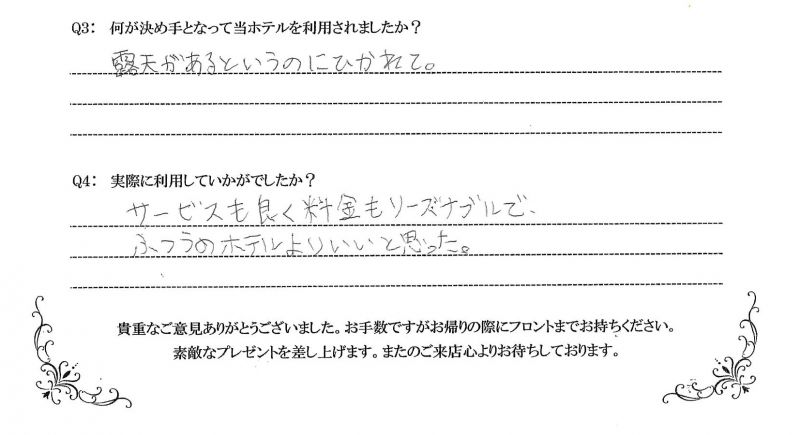 Q3： 何が決め手となって当ホテルを利用されましたか？
露天があるというのにひかれて。
Q4： 実際に利用していかがでしたか？
サービスも良く料金もリーズナブルで、
ふつうのホテルよりいいと思った。
貴重なご意見ありがとうございました。お手数ですがお帰りの際にフロントまでお持ちください。
素敵なプレゼントを差し上げます。またのご来店心よりお待ちしております。